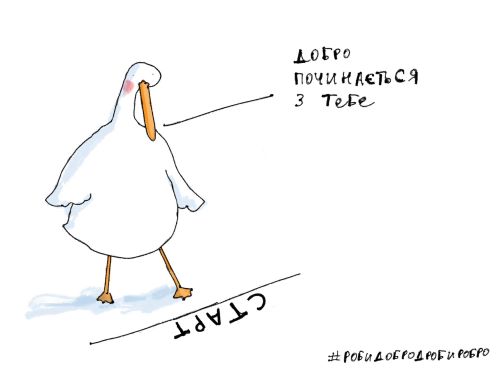 ДОБРО
ПОЧИНАЄТЬСЯ
З ТЕБЕ
СТАРТ
#РОБИДОБРОДРОБИРОБРО